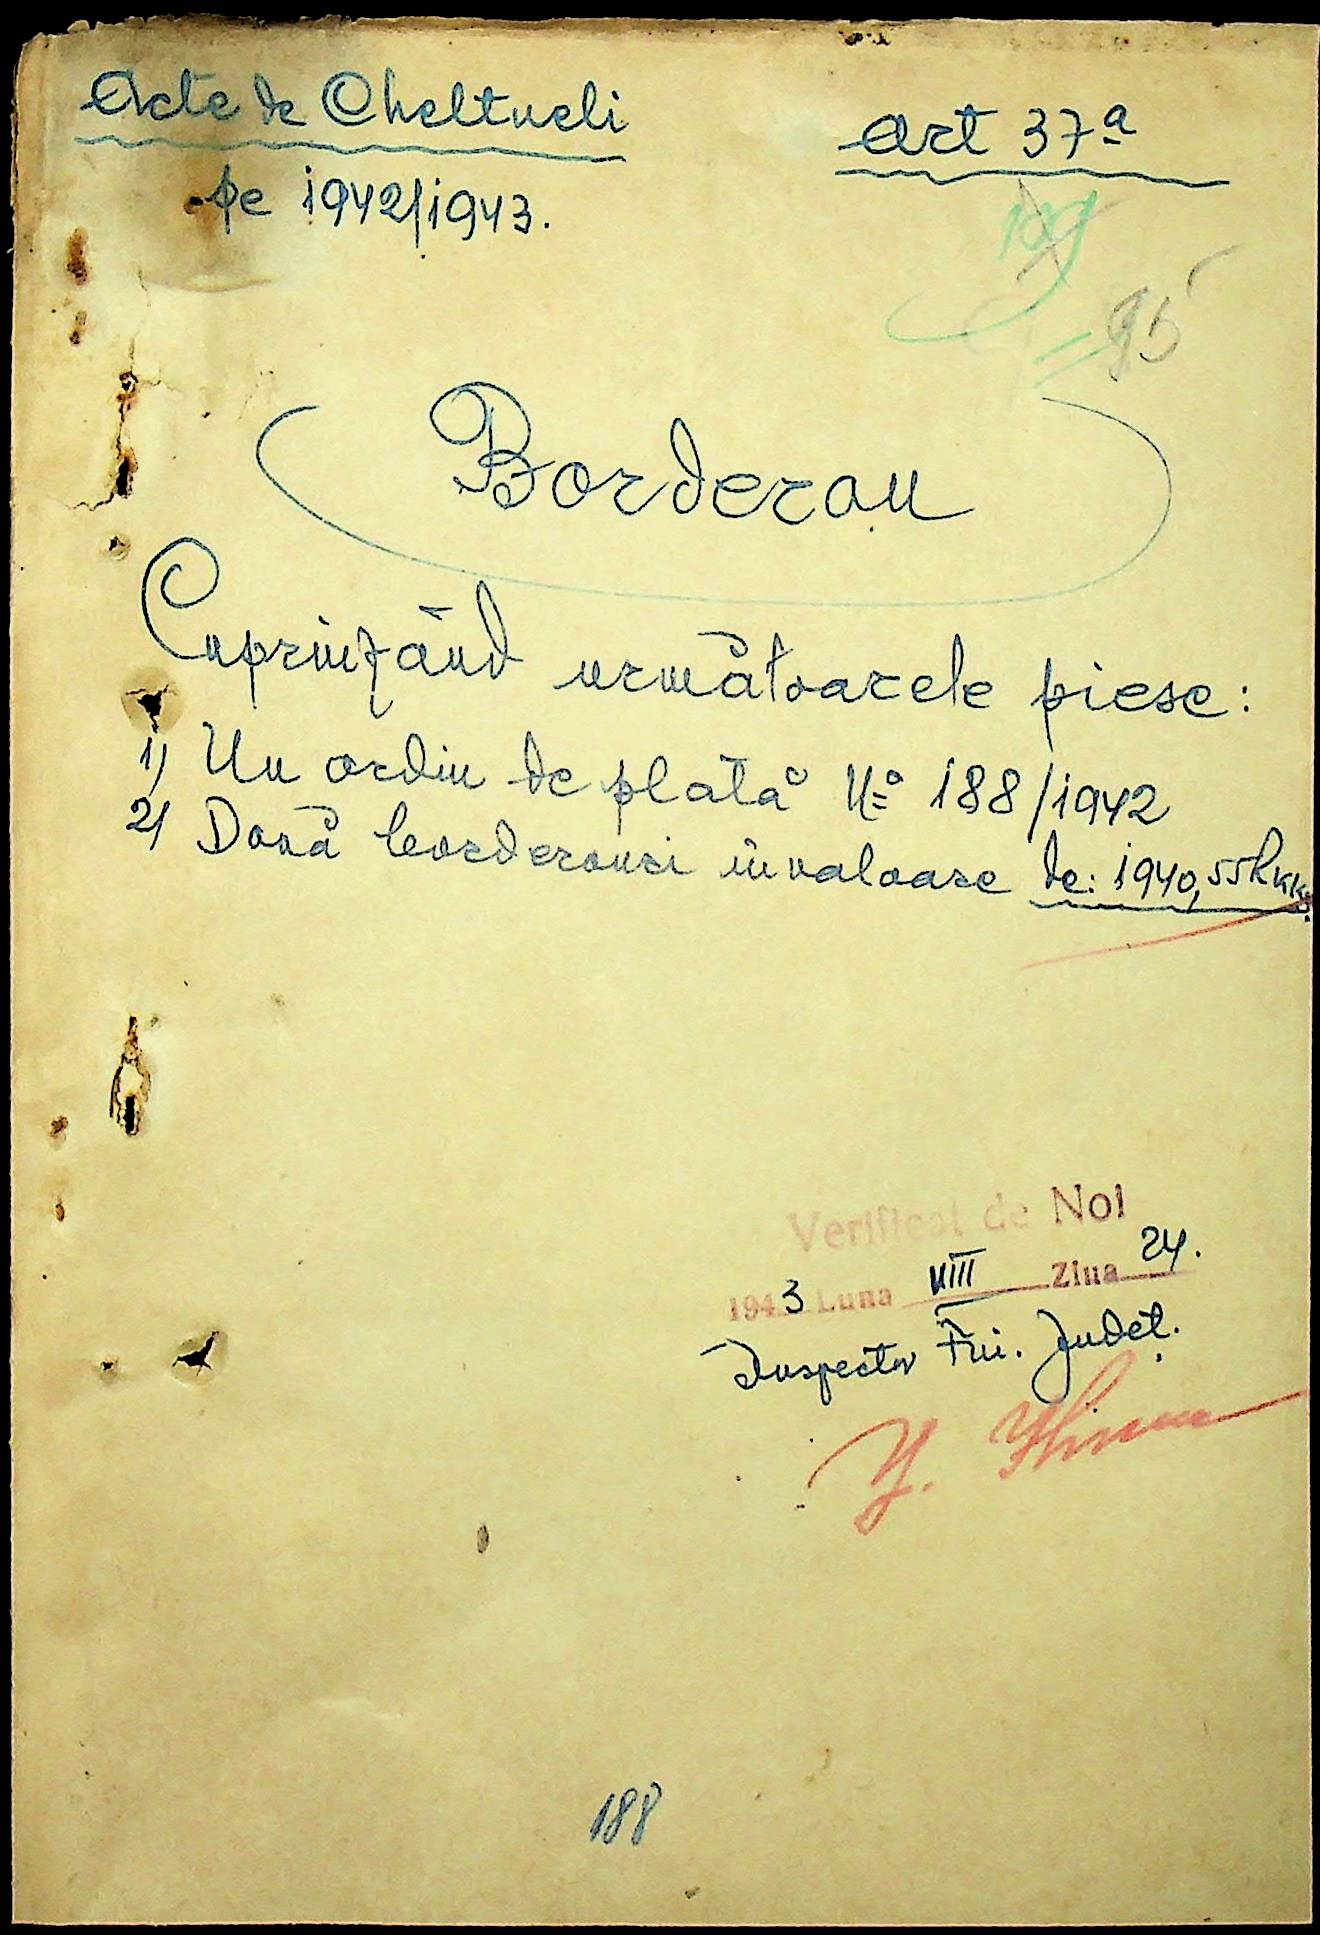 Acte de Cheltueli
pe 1942/1943.
art 37ª
95
Borderou
Cuprinzând următoarele piese:
1) Un ordin de plată No 188/1942
2) Două borderouri în valoare de: 1940,55 Rkks.
Verificat de Noi
1943 Luna VIII Ziua 24.
Inspector Fin. Județ.
188